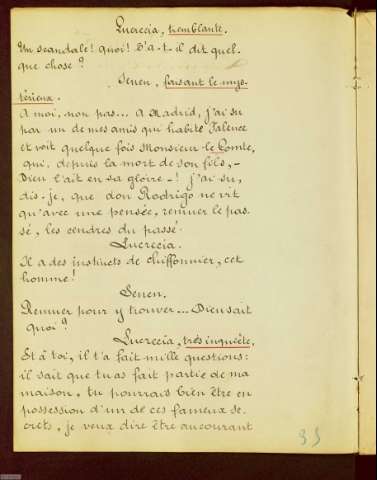 Lucrecia, tremblante.
Un scandale! quoi! T'a-t-il dit quel-
que chose?
Senen, faisant le mys-
térieux.
A moi, non pas... A Madrid, j'ai su
par un de mes amis qui habite Valence
et voit quelque fois Monsieur le Comte,
qui, depuis la mort de son fils,-
Dieu l'ait en sa gloire-! j'ai su,
dis-je, que don Rodrigo ne vit
qu'avec une pensée, remuer le pas-
sé, les cendres du passé.
Lucrecia.
Il a des instincts de chiffonnier, cet
homme!
Senen.
Remuer pour y trouver... Dieu sait
quoi?
Lucrecia, très inquiète.
Et à toi, il t'a fait mille questions:
il sait que tu as fait partie de ma
maison, tu pourrais bien être en
possession d'un de ces fameux se-
crets, je veux dire être au courant